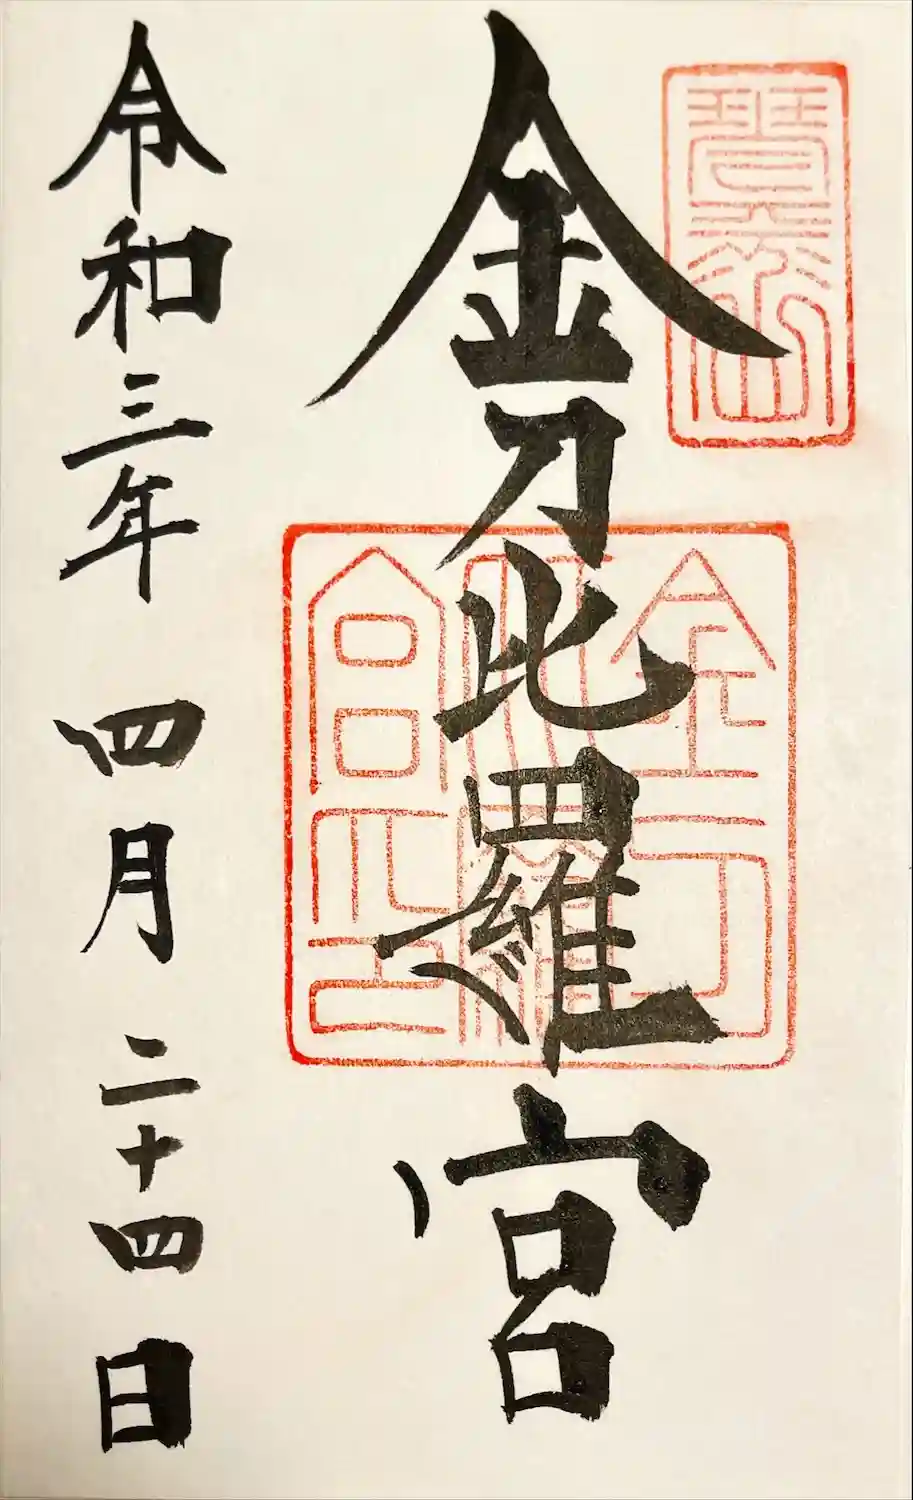 琴平山
金刀比羅宮
金刀比羅宮之印
令和三年 四月 二十四日